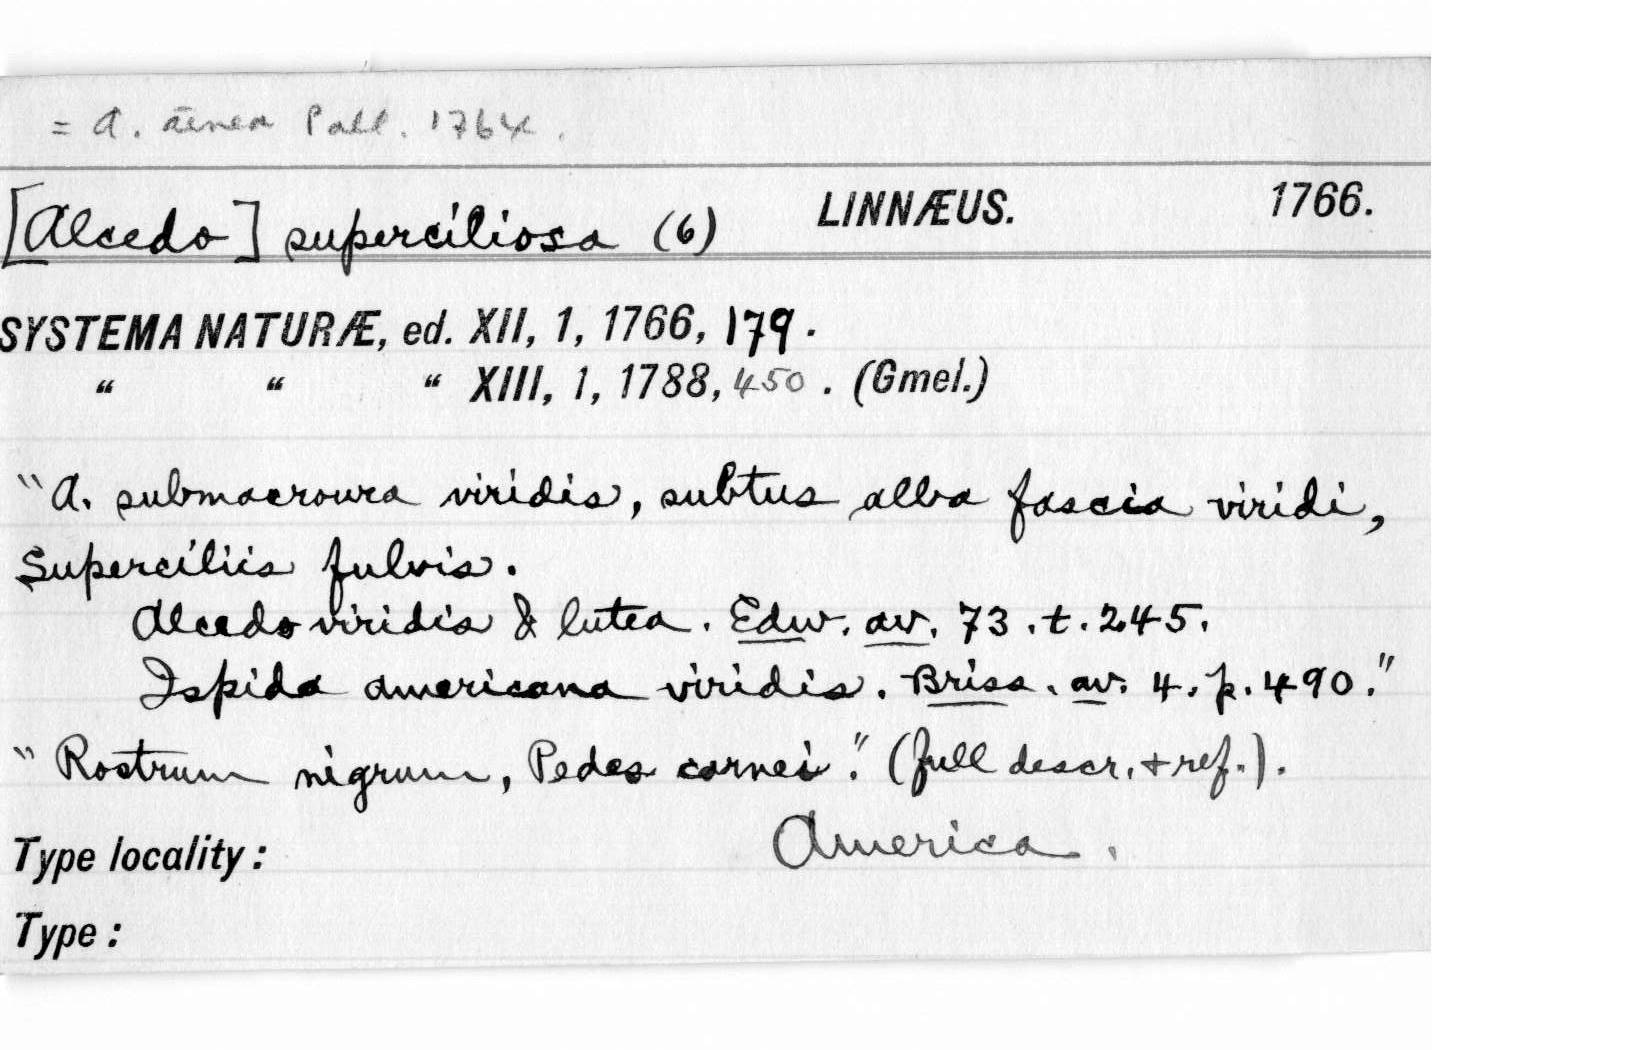 = A. ænea Pall. 1764.
[Alcedo] superciliosa (6) LINNÆUS. 1766.
SYSTEMA NATURÆ, ed. XII, 1, 1766, 179.
“ “ “ XIII, 1, 1788, 450. (Gmel.)
"A. submacroura viridis, subtus alba fascia viridi,
Superciliis fulvis.
Alcedo viridis & lutea. Edw. av. 73. t. 245.
Ispida americana viridis. Briss. av. 4. p. 490."
"Rostrum nigrum, Pedes carnei." (full descr. + ref.).
Type locality: America.
Type: